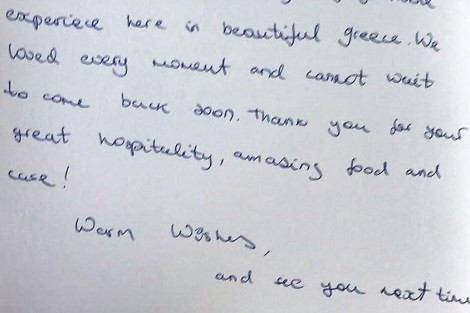 experiece here in beautiful greece. We
loved every moment and cannot wait
to come back soon. Thank you for your
great hospitality, amazing food and
care!
Warm Wishes,
and see you next time